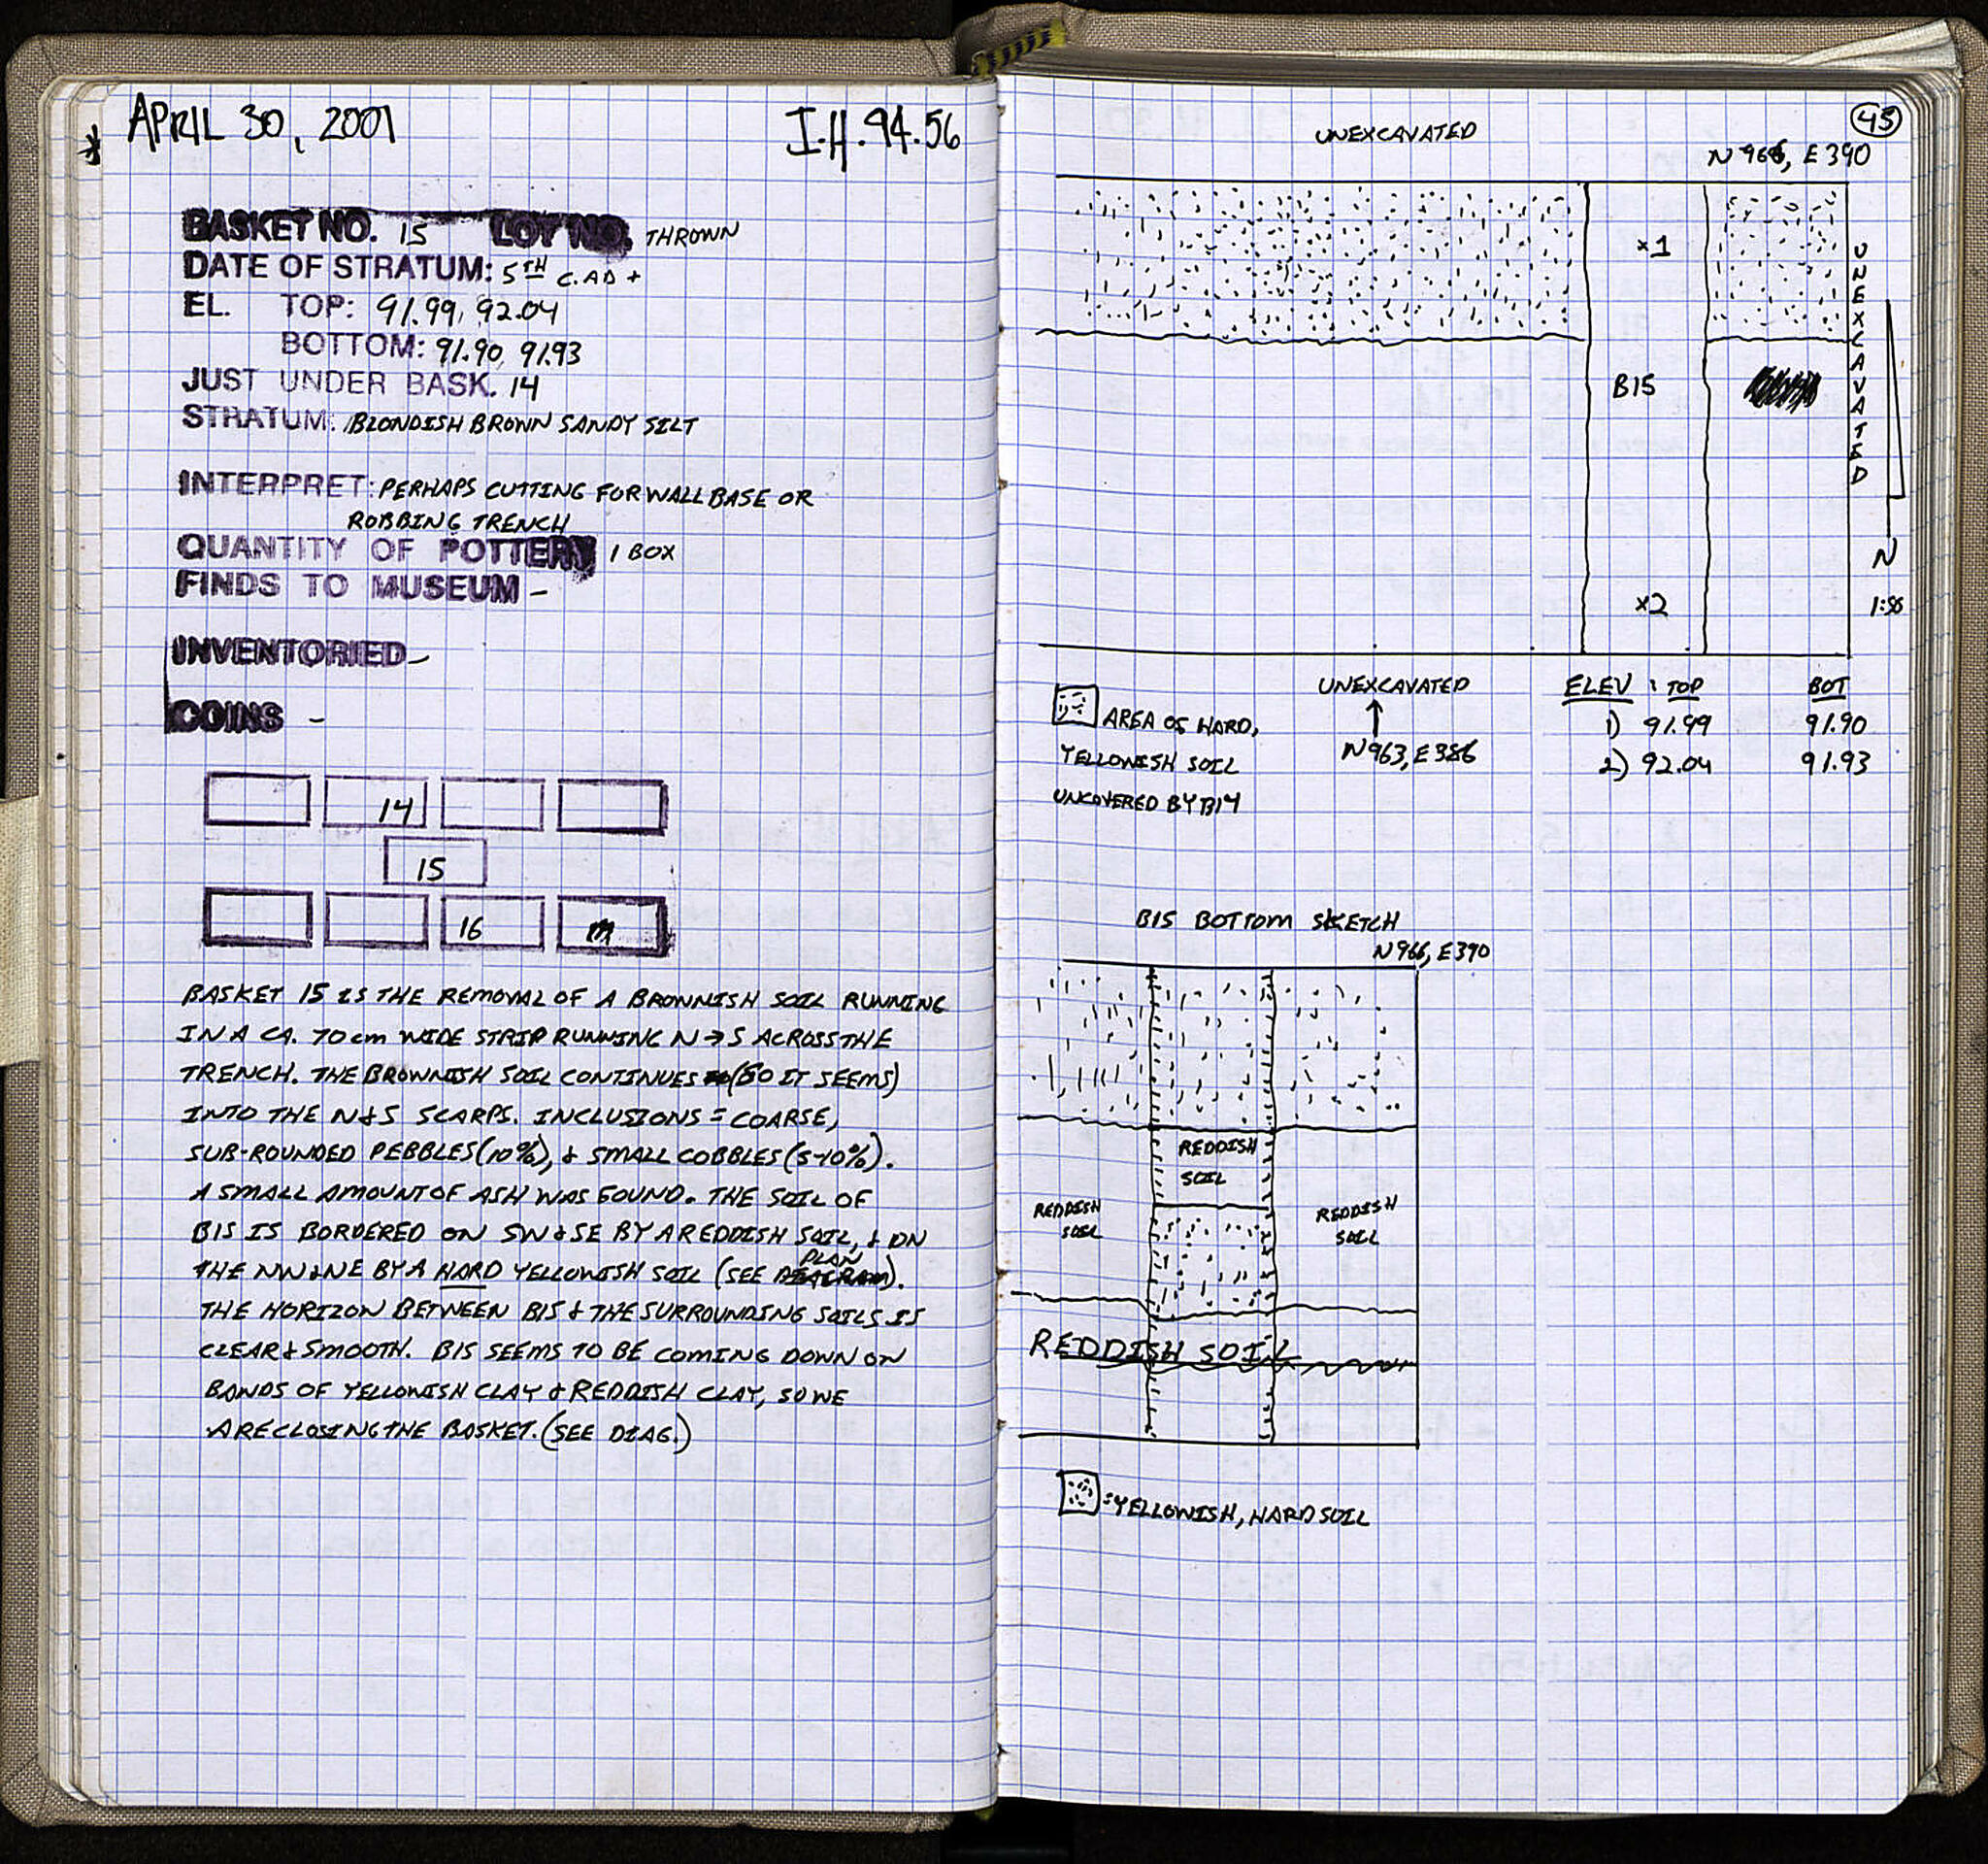 APRIL 30, 2001
I.H. 94.56
BASKET NO. 15 LOT NO. THROWN
DATE OF STRATUM: 5TH C. AD +
EL. TOP: 91.99, 92.04
BOTTOM: 91.90, 91.93
JUST UNDER BASK. 14
STRATUM: BLONDISH BROWN SANDY SILT
INTERPRET: PERHAPS CUTTING FOR WALL BASE OR
ROBBING TRENCH
QUANTITY OF POTTERY 1 BOX
FINDS TO MUSEUM -
INVENTORIED -
COINS -
14
15
16
BASKET 15 IS THE REMOVAL OF A BROWNISH SOIL RUNNING
IN A CA. 70 cm WIDE STRIP RUNNING N → S ACROSS THE
TRENCH. THE BROWNISH SOIL CONTINUES (SO IT SEEMS)
INTO THE N & S SCARPS. INCLUSIONS = COARSE,
SUB-ROUNDED PEBBLES (10%), & SMALL COBBLES (5-10%).
A SMALL AMOUNT OF ASH WAS FOUND. THE SOIL OF
B15 IS BORDERED ON SW & SE BY A REDDISH SOIL, & ON
THE NW & NE BY A HARD YELLOWISH SOIL (SEE PLAN).
THE HORIZON BETWEEN B15 & THE SURROUNDING SOILS IS
CLEAR & SMOOTH. B15 SEEMS TO BE COMING DOWN ON
BANDS OF YELLOWISH CLAY & REDDISH CLAY, SO WE
ARE CLOSING THE BASKET. (SEE DIAG.)
45
UNEXCAVATED
N 966, E 390
×1
UNEXCAVATED
B15
N
×2
1:50
UNEXCAVATED
N963, E386
AREA OF HARD,
YELLOWISH SOIL
UNCOVERED BY B14
ELEV : TOP BOT
1) 91.99 91.90
2) 92.04 91.93
B15 BOTTOM SKETCH
N 966, E390
REDDISH
SOIL
REDDISH
SOIL
REDDISH
SOIL
REDDISH SOIL
: YELLOWISH, HARD SOIL